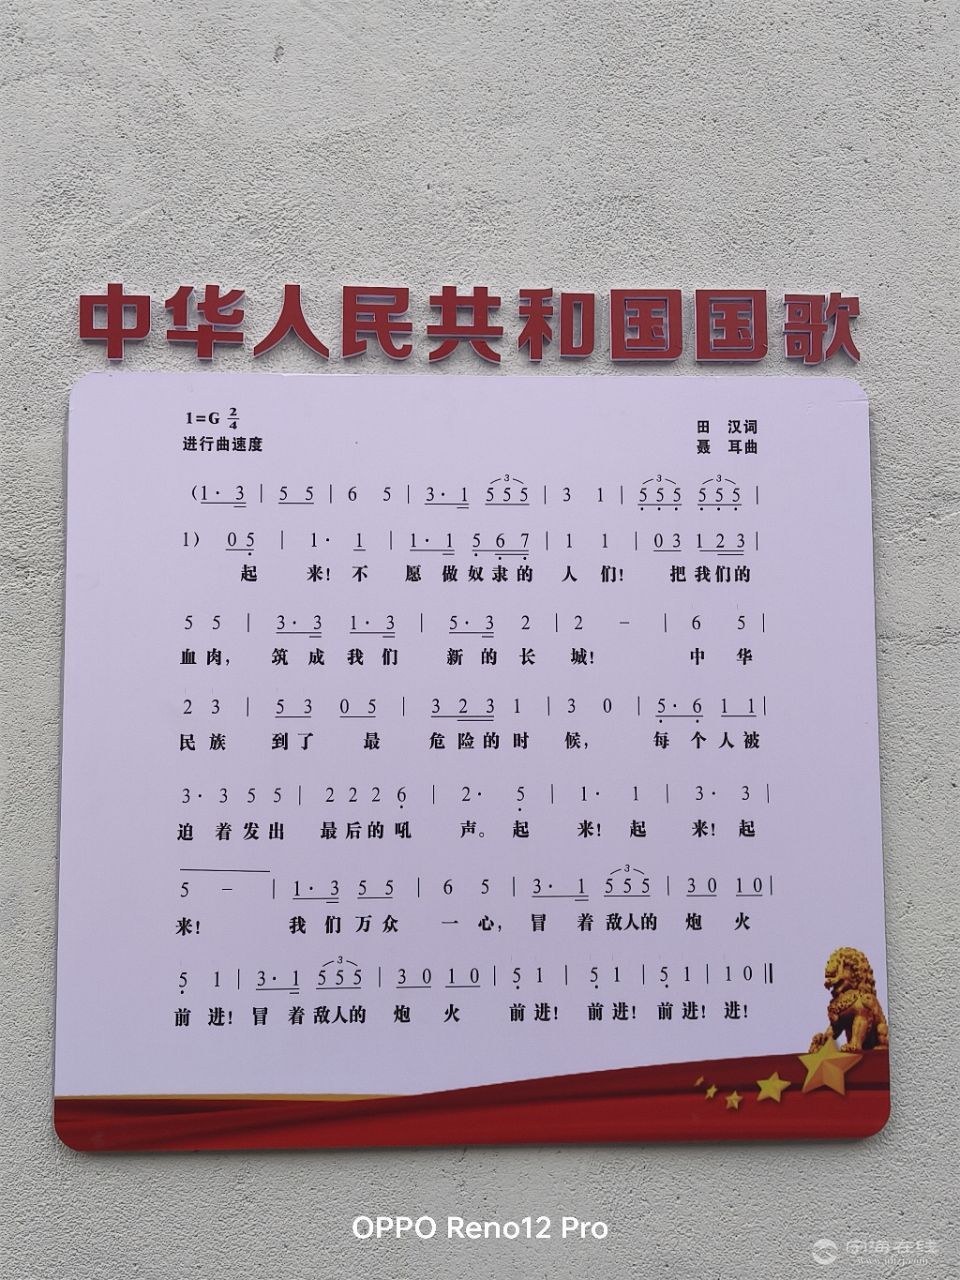 中华人民共和国国歌
1=G 2/4
进行曲速度
田 汉词
聂 耳曲
(1· 3 | 5 5 | 6 5 | 3· 1 5 5 5 | 3 1 | 5 5 5 5 5 5 |
1) 0 5 | 1· 1 | 1· 1 5 6 7 | 1 1 | 0 3 1 2 3 |
起 来! 不 愿 做 奴 隶 的 人 们! 把 我 们 的
5 5 | 3· 3 1· 3 | 5· 3 2 | 2 － | 6 5 |
血 肉, 筑 成 我 们 新 的 长 城! 中 华
2 3 | 5 3 0 5 | 3 2 3 1 | 3 0 | 5· 6 1 1 |
民 族 到 了 最 危 险 的 时 候, 每 个 人 被
3· 3 5 5 | 2 2 2 6 | 2· 5 | 1· 1 | 3· 3 |
迫 着 发 出 最 后 的 吼 声。 起 来! 起 来! 起
5 － | 1· 3 5 5 | 6 5 | 3· 1 5 5 5 | 3 0 1 0 |
来! 我 们 万 众 一 心, 冒 着 敌人的 炮 火
5 1 | 3· 1 5 5 5 | 3 0 1 0 | 5 1 | 5 1 | 5 1 | 1 0 ‖
前 进! 冒 着 敌人的 炮 火 前 进! 前 进! 前 进! 进!
OPPO Reno12 Pro